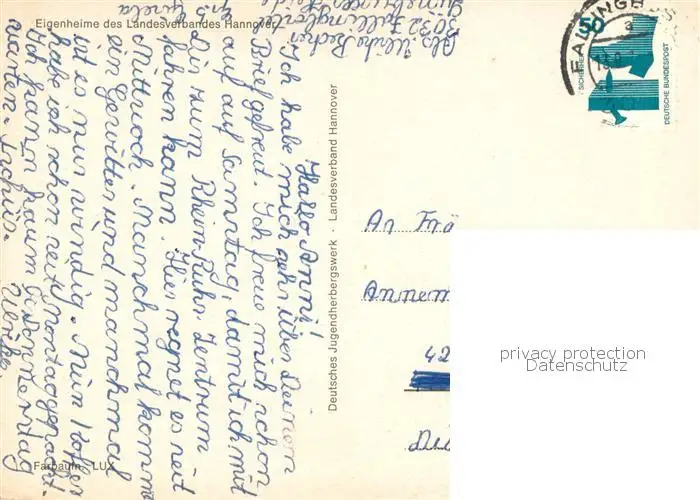 Eigenheime des Landesverbandes Hannover
Hallo Anni!
Ich habe mich sehr über Deinen
Brief gefreut. Ich freue mich schon
auf auf Samstag, damit ich mit
Dir zum Rhein-Ruhr-Zentrum
fahren kann. Hier regnet es seit
Mittwoch. Manchmal kommt
ein Gewitter und manchmal
ist es nur windig. Mein Koffer
habe ich schon seit Montag gepackt.
Ich kann kaum Donnerstag
warten. Tschüs.
Ulrike
Farbaufn. LUX
Deutsches Jugendherbergswerk · Landesverband Hannover
Abs. Ulrike Becher
3032 Fallingbostel
50
SICHERHEI
DEUTSCHE BUNDESPOST
An Frä
Annem
42
privacy protection
Datenschutz